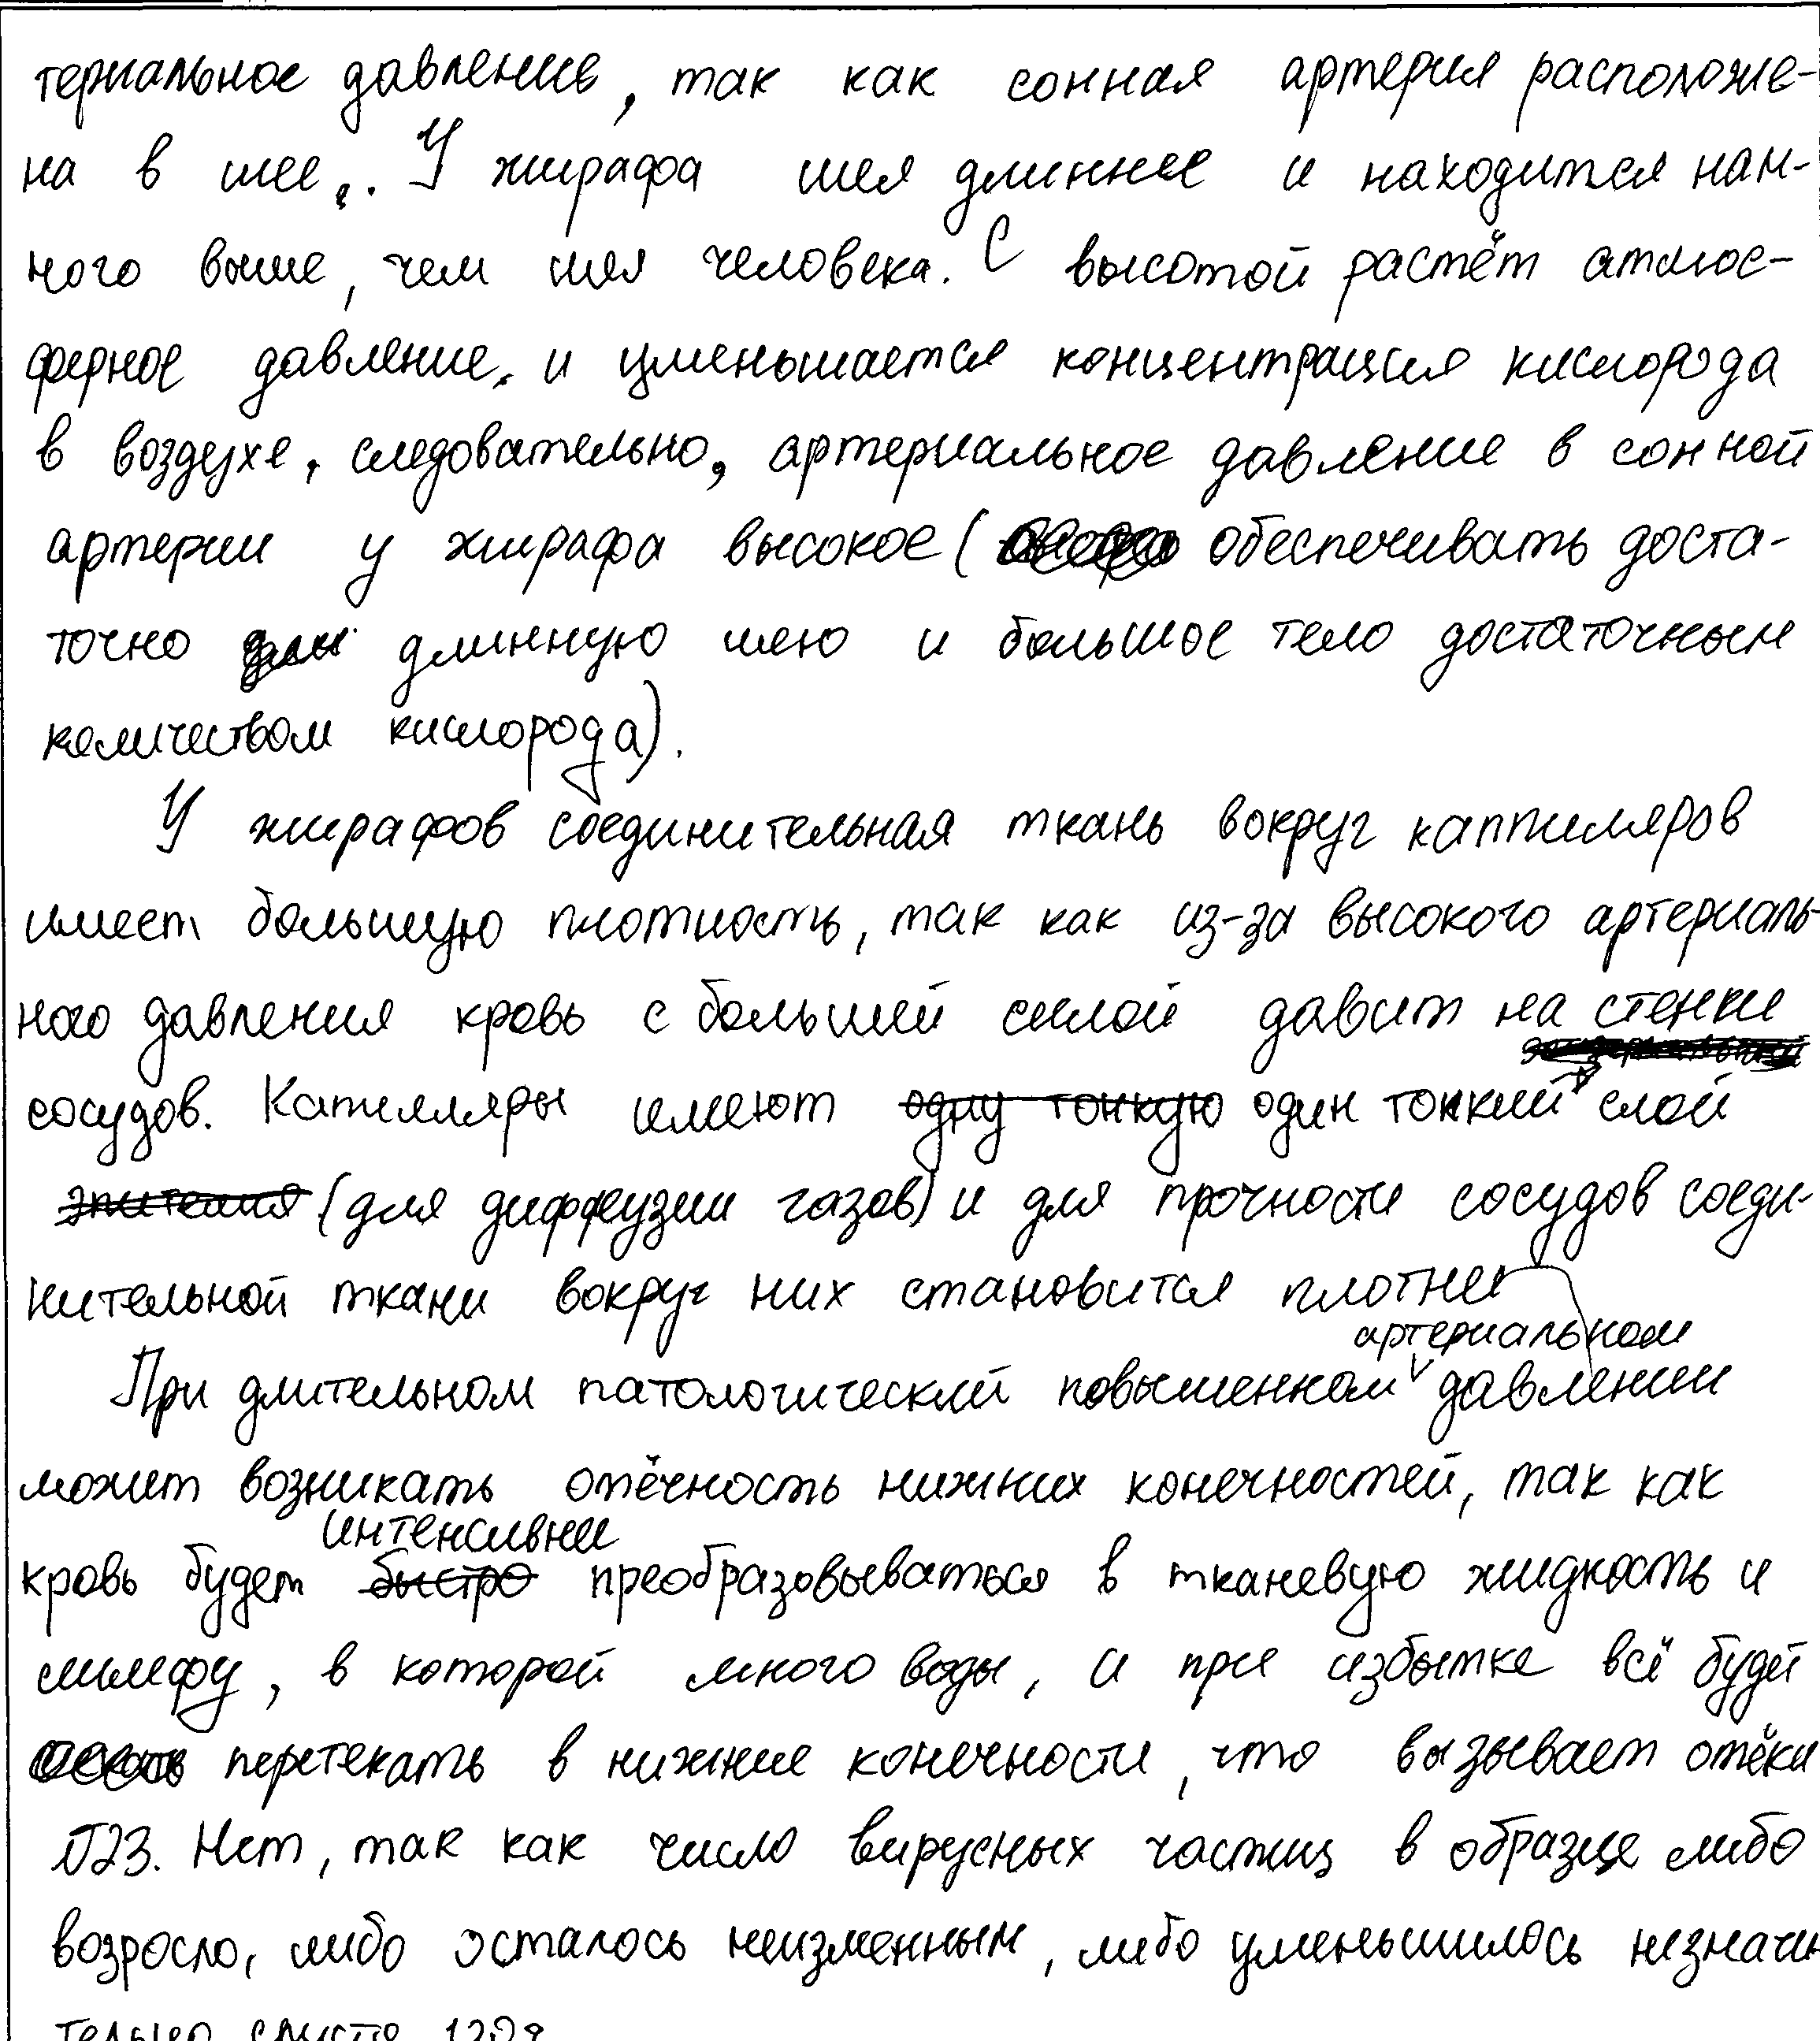 териальное давление, так как сонная артерия расположе-
на в шее. У жирафа шея длиннее и находится нам-
ного выше, чем шея человека. С высотой растёт атмос-
ферное давление, и уменьшается концентрация кислорода
в воздухе, следовательно, артериальное давление в сонной
артерии у жирафа высокое ( обеспечивать доста-
точно длинную шею и большое тело достаточным
количеством кислорода).
У жирафов соединительная ткань вокруг каппиляров
имеет большую плотность, так как из-за высокого артериаль-
ного давления кровь с большей силой давит на стенки
сосудов. Капилляры имеют одну тонкую один тонкий слой
эпителия (для диффузии газов) и для прочности сосудов соеди-
нительной ткани вокруг них становится плотней
артериальном
При длительном патологический повышенном давлении
может возникать отёчность нижних конечностей, так как
интенсивней
кровь будет быстро преобразовываться в тканевую жидкость и
лимфу, в которой много воды, и при избытке всё будет
перетекать в нижние конечности, что вызывает отёки
№23. Нет, так как число вирусных частиц в образце либо
возросло, либо осталось неизменным, либо уменьшилось незначи
тельно спустя 120